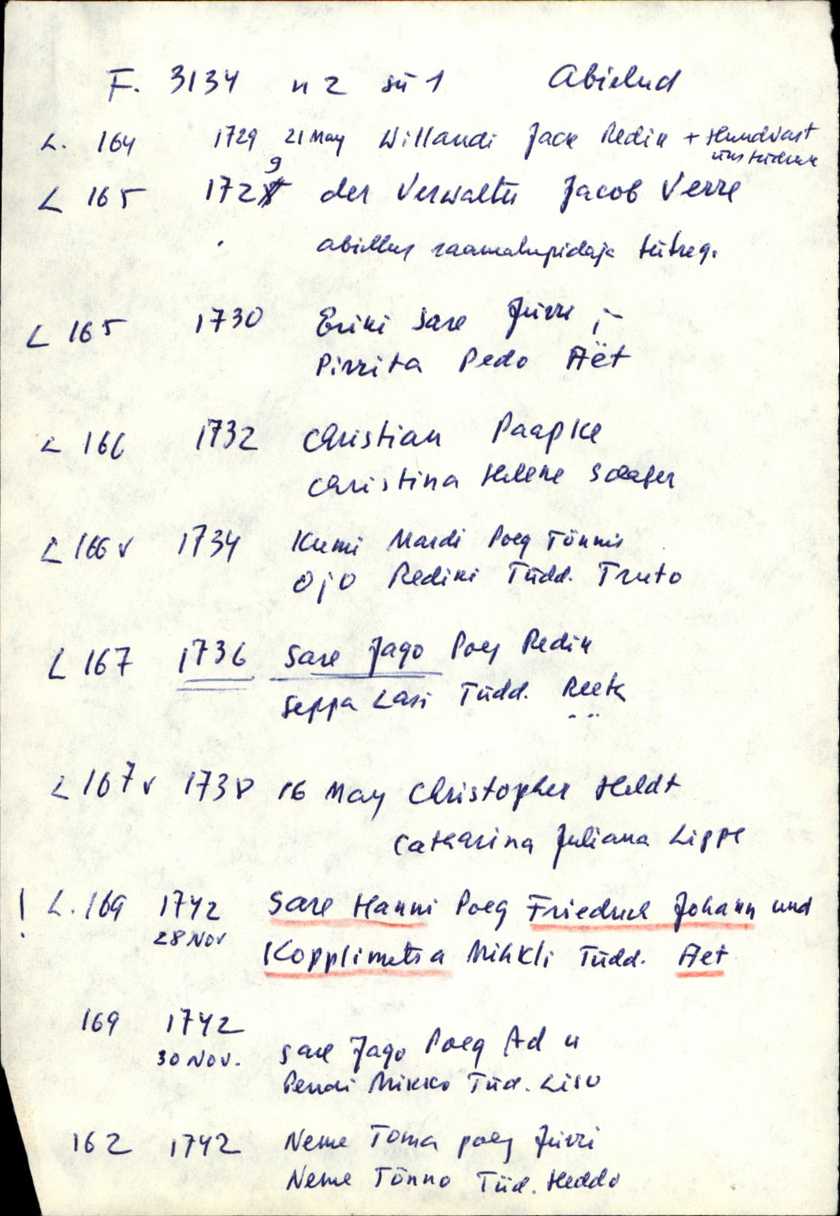 F. 3134 n 2 sü 1 Abielud
L. 164 1729 21 May Willandi Jack Redik +
L 165 1729 der Verwalter Jacob Verre
abiellus raamatupidaja tütreg.
L 165 1730 Eriki Sare Jürri j-
Pirrita Pedo Aët
L 166 1732 Christian Paapke
Christina Helene
L 166 v 1734 Kumi Mardi Poeg Tönnis
Ojo Rediki Tüdd. Truto
L 167 1736 Sare Jago Poeg Redik
Seppa Lasi Tüdd. Reet
L 167 v 1738 16 May Christopher Heldt
Catharina Juliana Lippe
! L. 169 1742 Sare Hanni Poeg Friedrich Johann und
28 Nov Kopplimetsa Mihkli Tüdd. Aet
169 1742
30 Nov. Sare Jago Poeg Ad u
Mikko Tüd. Liso
162 1742 Neme Toma poeg Jürri
Neme Tönno Tüd. Heddo